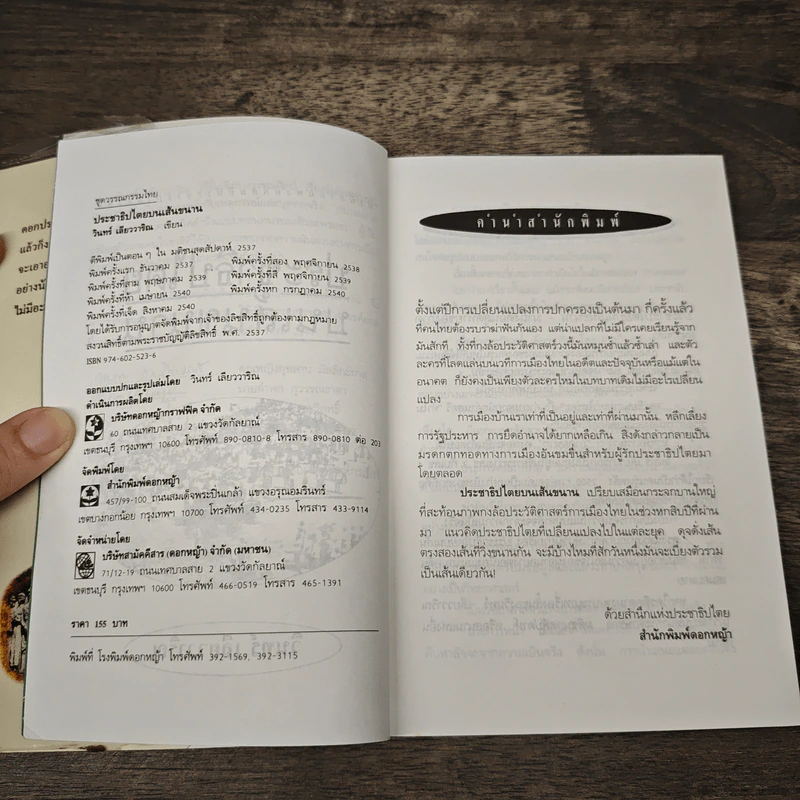 ดอกประ
แล้วกิ่ง
จะเอาอ
อย่างนั
ไม่มีอะ
ชุดวรรณกรรมไทย
ประชาธิปไตยบนเส้นขนาน
วินทร์ เลียววาริณ เขียน
ตีพิมพ์เป็นตอน ๆ ใน มติชนสุดสัปดาห์ 2537
พิมพ์ครั้งแรก ธันวาคม 2537 พิมพ์ครั้งที่สอง พฤศจิกายน 2538
พิมพ์ครั้งที่สาม พฤษภาคม 2539 พิมพ์ครั้งที่สี่ พฤศจิกายน 2539
พิมพ์ครั้งที่ห้า เมษายน 2540 พิมพ์ครั้งที่หก กรกฎาคม 2540
พิมพ์ครั้งที่เจ็ด สิงหาคม 2540
โดยได้รับการอนุญาตจัดพิมพ์จากเจ้าของลิขสิทธิ์ถูกต้องตามกฎหมาย
สงวนลิขสิทธิ์ตามพระราชบัญญัติลิขสิทธิ์ พ.ศ. 2537
ISBN 974-602-523-6
ออกแบบปกและรูปเล่มโดย วินทร์ เลียววาริณ
ดำเนินการผลิตโดย
บริษัทดอกหญ้ากราฟฟิค จำกัด
60 ถนนเทศบาลสาย 2 แขวงวัดกัลยาณ์
เขตธนบุรี กรุงเทพฯ 10600 โทรศัพท์ 890-0810-8 โทรสาร 890-0810 ต่อ 203
จัดพิมพ์โดย
สำนักพิมพ์ดอกหญ้า
457/99-100 ถนนสมเด็จพระปิ่นเกล้า แขวงอรุณอมรินทร์
เขตบางกอกน้อย กรุงเทพฯ 10700 โทรศัพท์ 434-0235 โทรสาร 433-9114
จัดจำหน่ายโดย
บริษัทสามัคคีสาร (ดอกหญ้า) จำกัด (มหาชน)
71/12-19 ถนนเทศบาลสาย 2 แขวงวัดกัลยาณ์
เขตธนบุรี กรุงเทพฯ 10600 โทรศัพท์ 466-0519 โทรสาร 465-1391
ราคา 155 บาท
พิมพ์ที่ โรงพิมพ์ดอกหญ้า โทรศัพท์ 392-1569, 392-3115
คำนำสำนักพิมพ์
ตั้งแต่ปีการเปลี่ยนแปลงการปกครองเป็นต้นมา กี่ครั้งแล้ว
ที่คนไทยต้องรบราฆ่าฟันกันเอง แต่น่าแปลกที่ไม่มีใครเคยเรียนรู้จาก
มันสักที ทั้งที่กงล้อประวัติศาสตร์วงนี้มันหมุนซ้ำแล้วซ้ำเล่า และตัว
ละครที่โลดแล่นบนเวทีการเมืองไทยในอดีตและปัจจุบันหรือแม้แต่ใน
อนาคต ก็ยังคงเป็นเพียงตัวละครใหม่ในบทบาทเดิมไม่มีอะไรเปลี่ยน
แปลง
การเมืองบ้านเราเท่าที่เป็นอยู่และเท่าที่ผ่านมานั้น หลีกเลี่ยง
การรัฐประหาร การยึดอำนาจได้ยากเหลือเกิน สิ่งดังกล่าวกลายเป็น
มรดกตกทอดทางการเมืองอันขมขื่นสำหรับผู้รักประชาธิปไตยมา
โดยตลอด
ประชาธิปไตยบนเส้นขนาน เปรียบเสมือนกระจกบานใหญ่
ที่สะท้อนภาพกงล้อประวัติศาสตร์การเมืองไทยในช่วงหกสิบปีที่ผ่าน
มา แนวคิดประชาธิปไตยที่เปลี่ยนแปลงไปในแต่ละยุค ดุจดั่งเส้น
ตรงสองเส้นที่วิ่งขนานกัน จะมีบ้างไหมที่สักวันหนึ่งมันจะเบี่ยงตัวรวม
เป็นเส้นเดียวกัน!
ด้วยสำนึกแห่งประชาธิปไตย
สำนักพิมพ์ดอกหญ้า